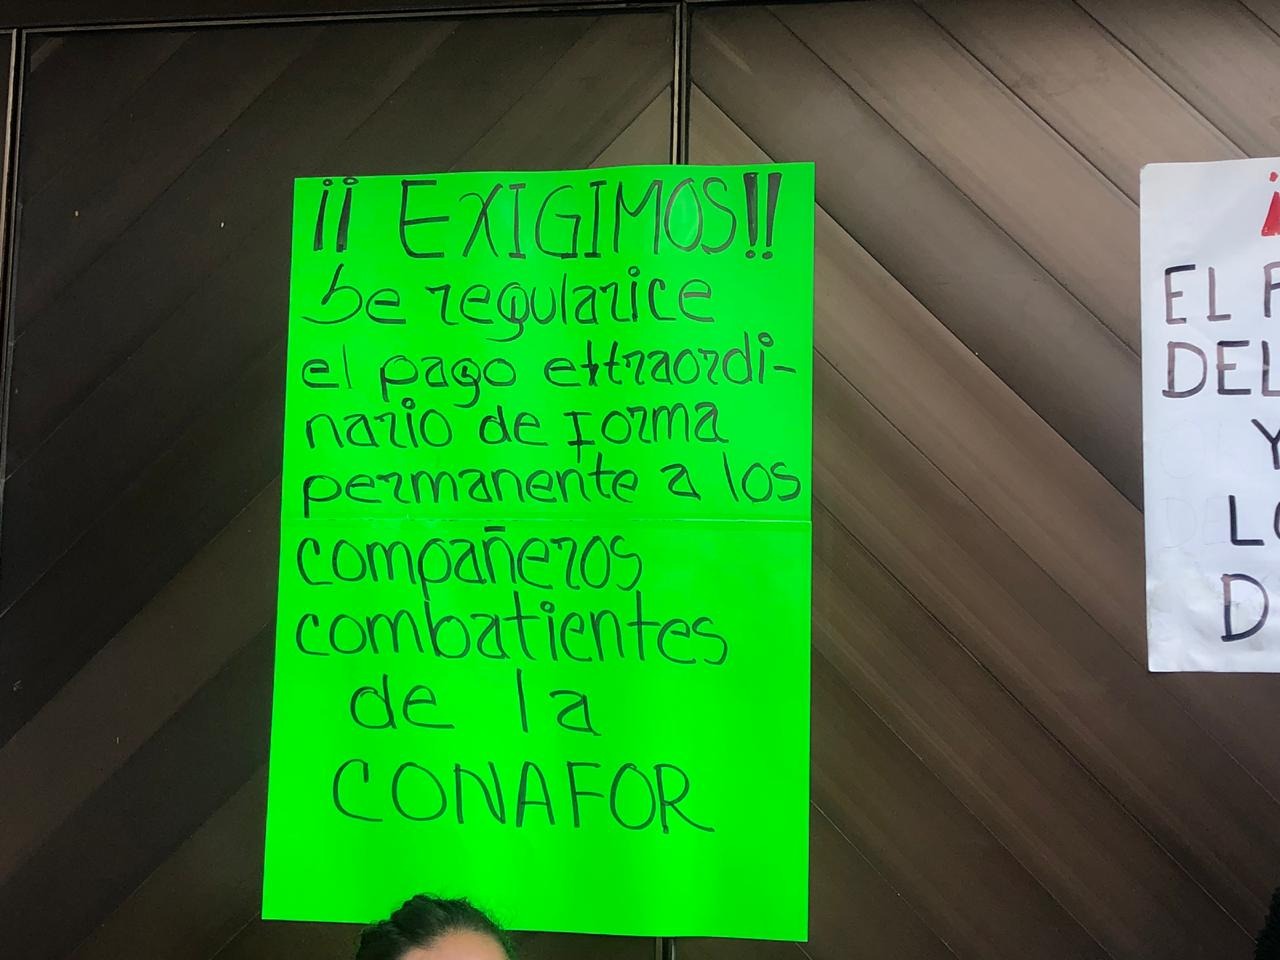 ¡¡ EXIGIMOS!!
Se regularice
el pago extraordi-
nario de forma
permanente a los
compañeros
combatientes
de la
CONAFOR
¡
EL
DEL
Y